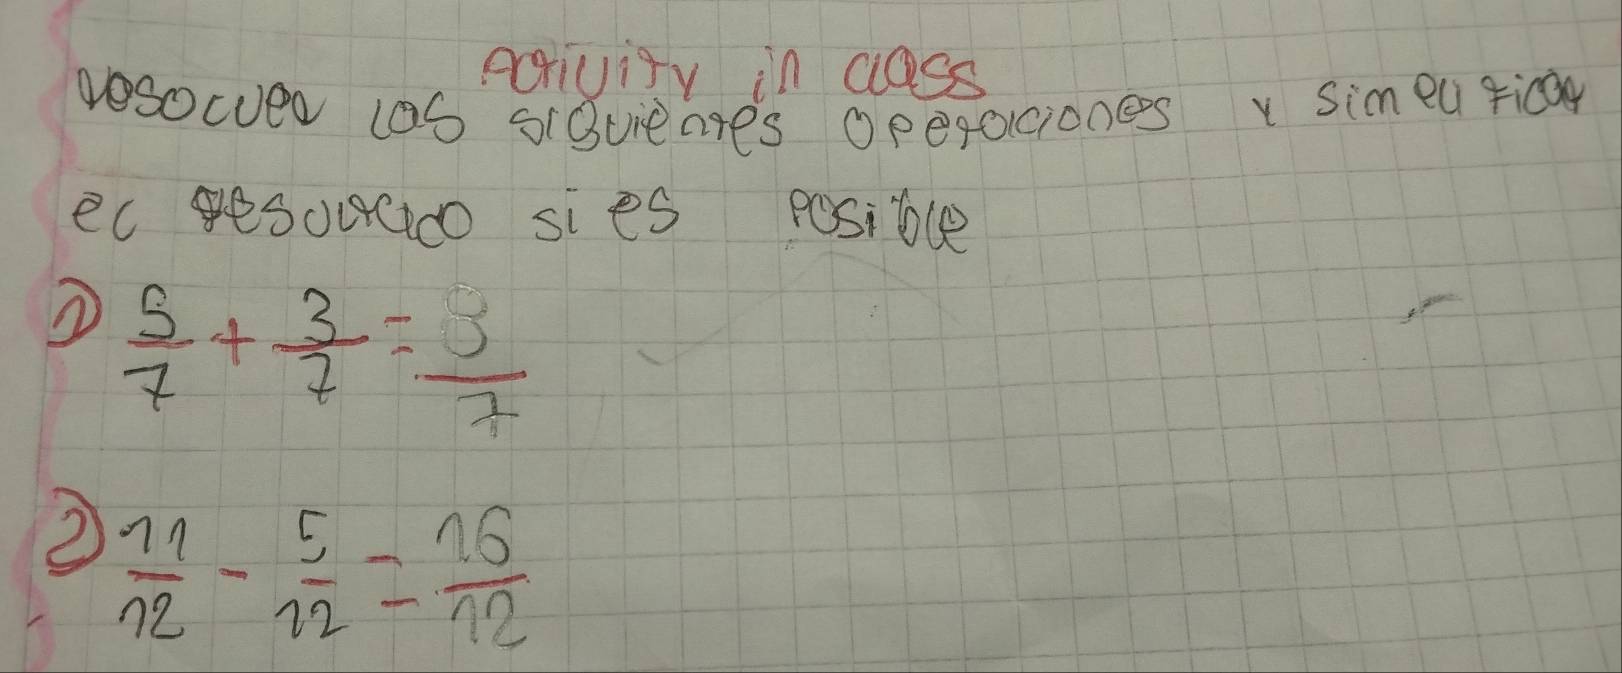 Activity in class
Resolver los siguientes operaciones y simplificar
el resultado si es posible
1) 5/7 + 3/7 = 8/7
2) 11/12 - 5/12 = 16/12